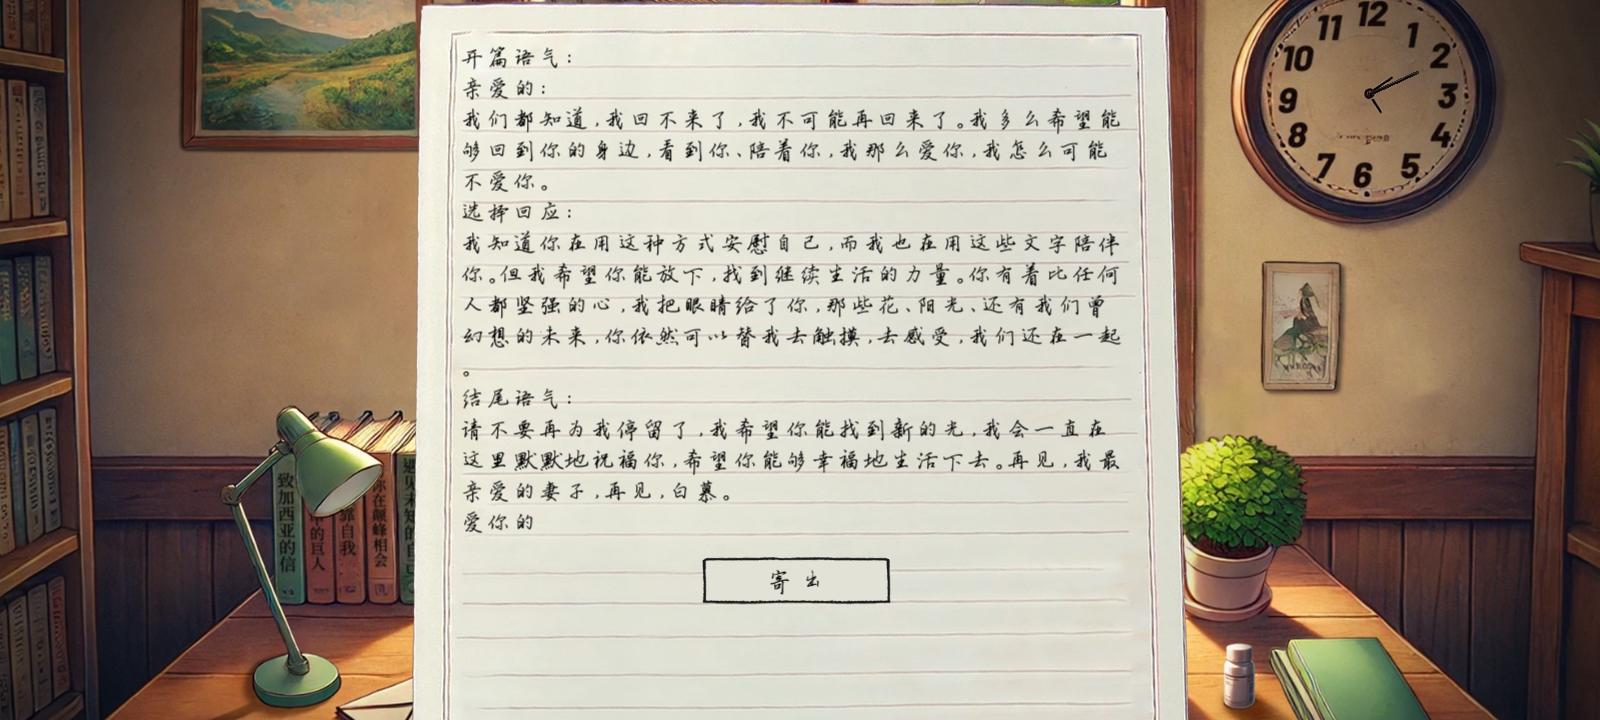 开篇语气：
亲爱的：
我们都知道,我回不来了,我不可能再回来了。我多么希望能
够回到你的身边,看到你、陪着你,我那么爱你,我怎么可能
不爱你。
选择回应：
我知道你在用这种方式安慰自己,而我也在用这些文字陪伴
你。但我希望你能放下,找到继续生活的力量。你有着比任何
人都坚强的心,我把眼睛给了你,那些花、阳光、还有我们曾
幻想的未来,你依然可以替我去触摸,去感受,我们还在一起
。
结尾语气：
请不要再为我停留了,我希望你能找到新的光,我会一直在
这里默默地祝福你,希望你能够幸福地生活下去。再见,我最
亲爱的妻子,再见,白慕。
爱你的
寄出
12
1
2
3
4
5
6
7
8
9
10
11
致加西亚的信
的巨人
靠自我
你在巅峰相会
遇见未知的自己